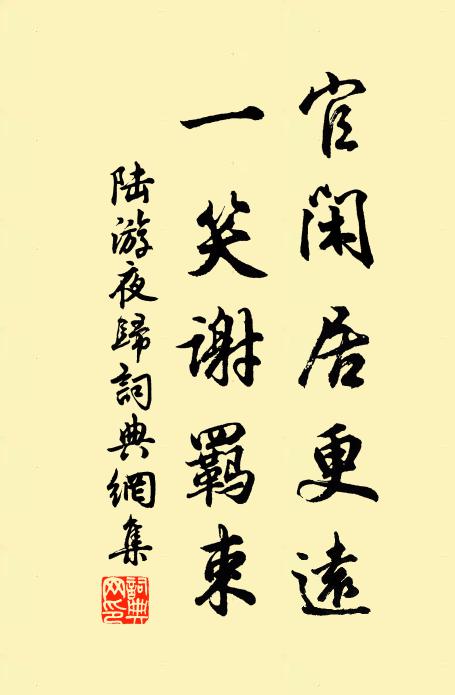 官閑居更遠
一笑謝羈束
陆游夜歸詞典網集
詞典网印